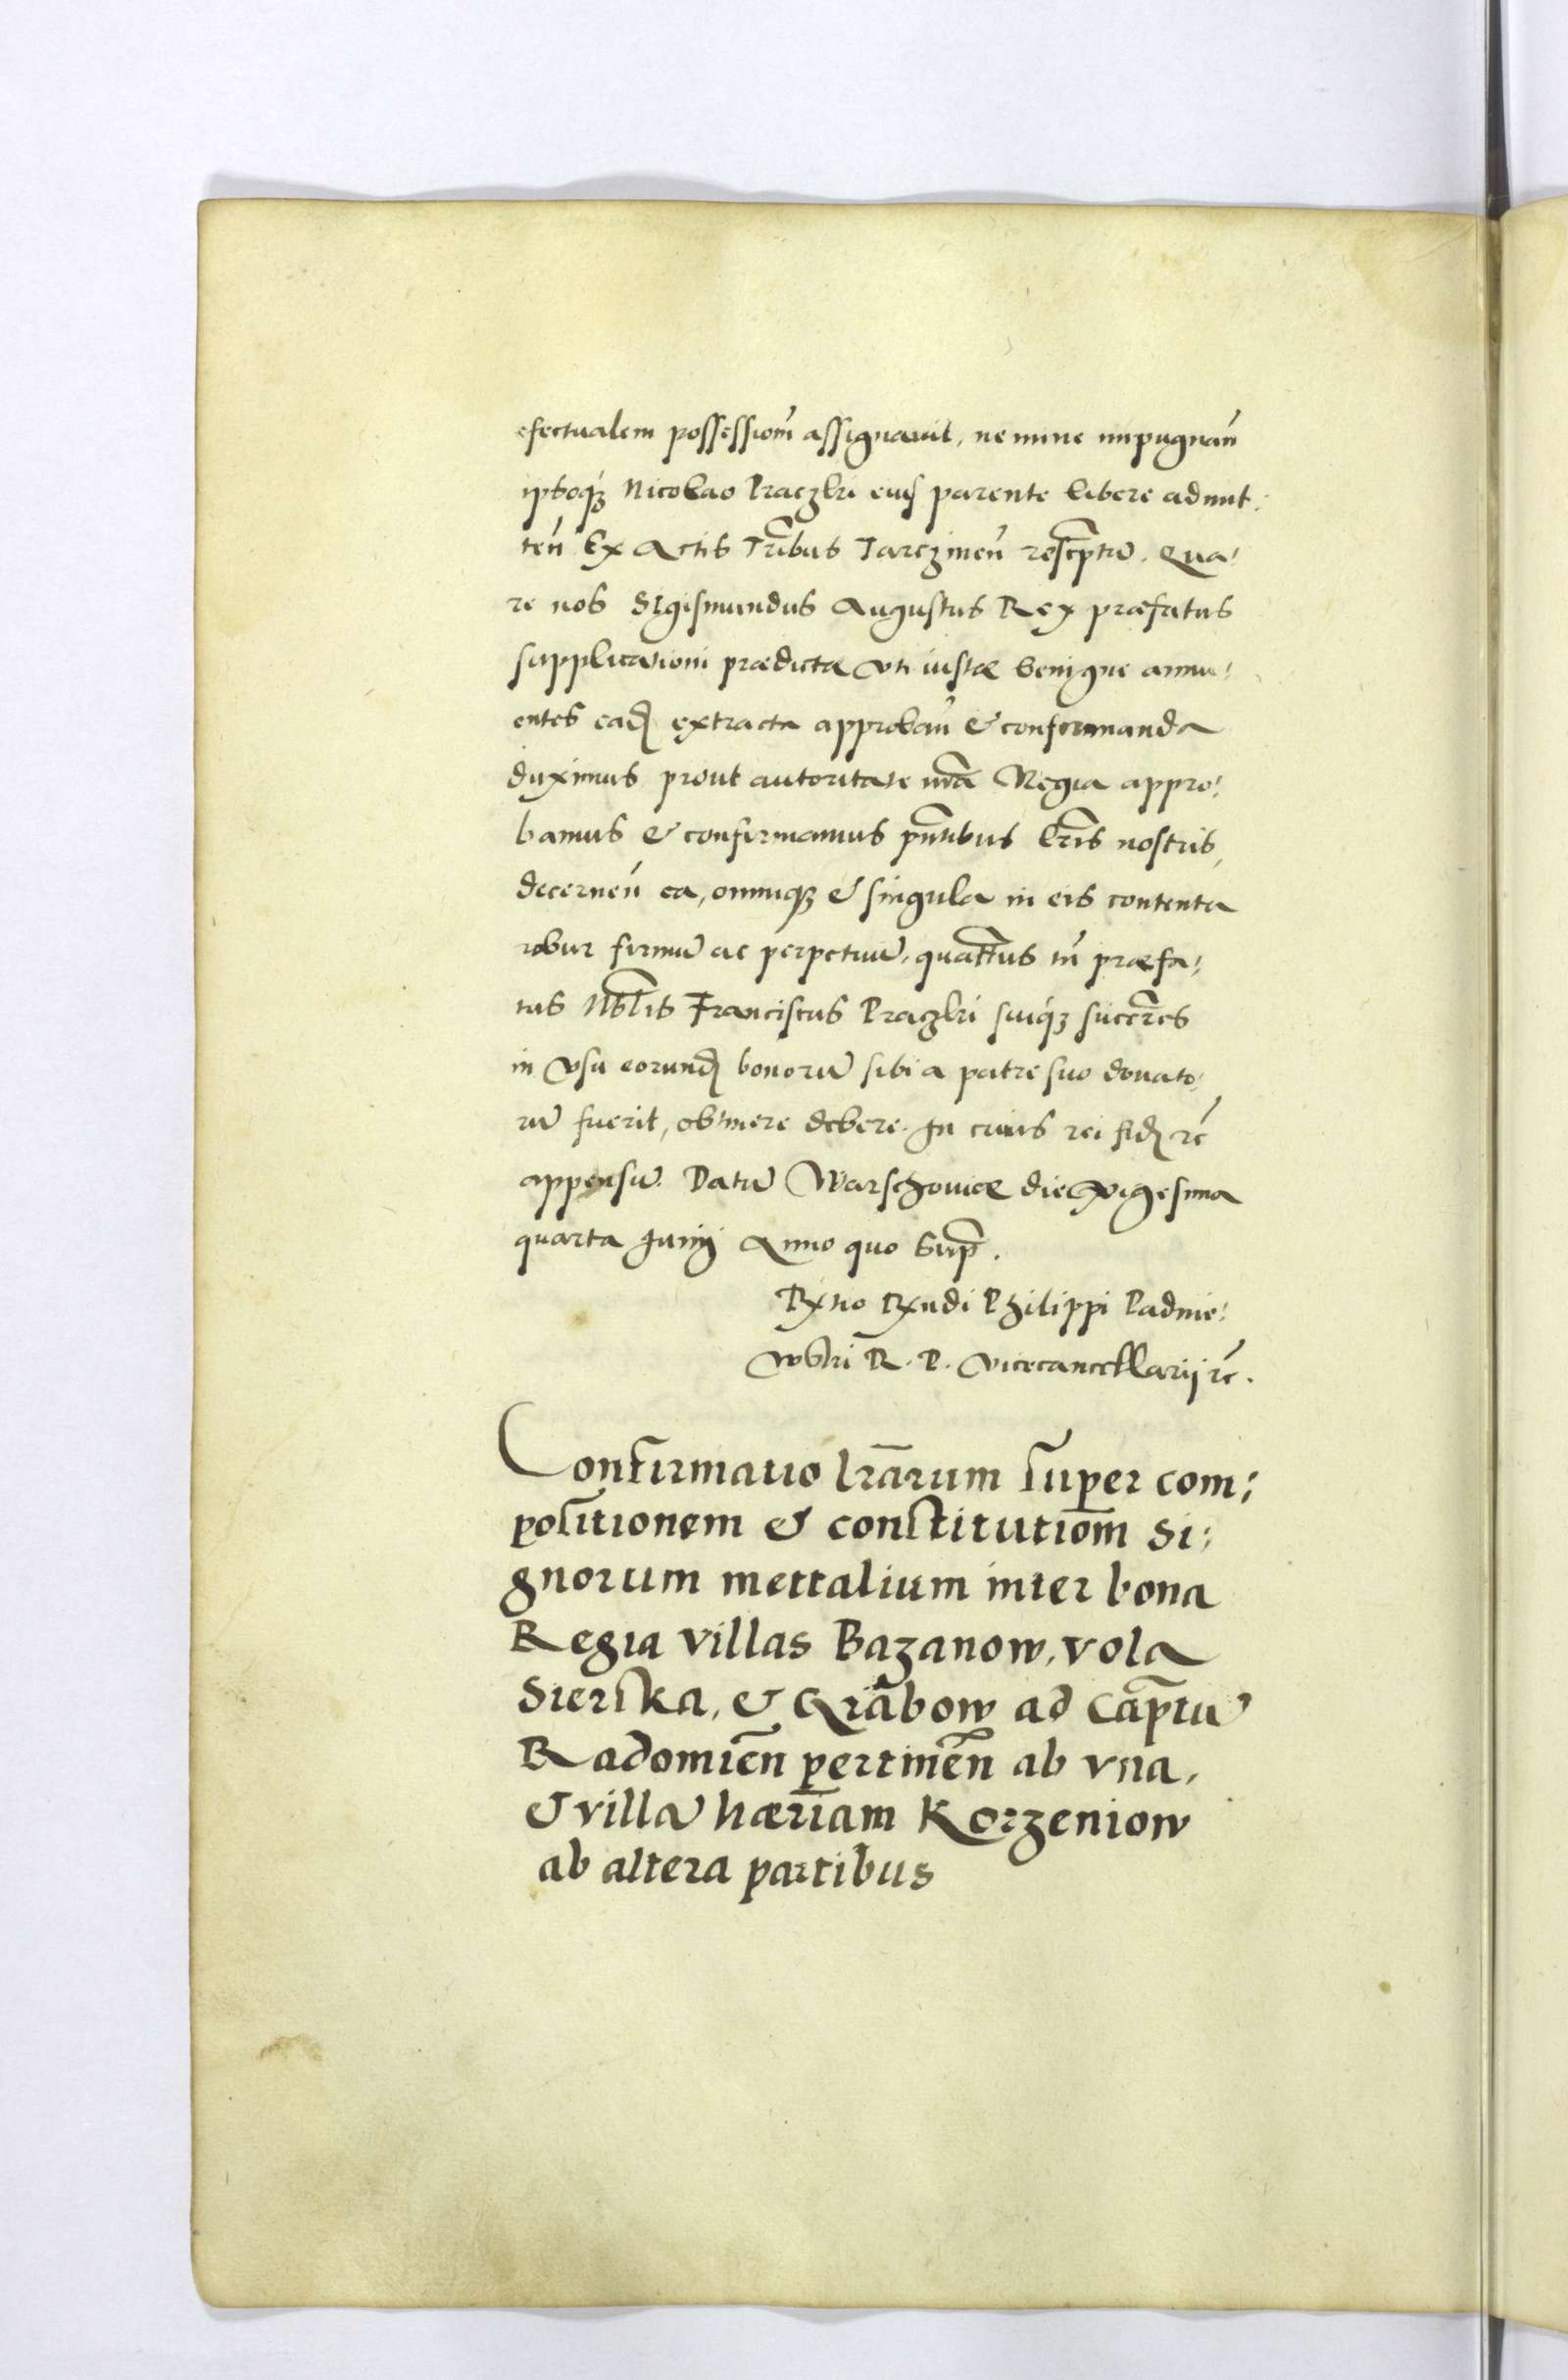 efectualem possessiom̃ assignauit, nemine impugnañ
ipsoqꝫ Nicolao Praczlri eius parente libere admit:
teñ Ex Actis Tr̃ibus Tarczineñ resc̃ptũ. Qua:
re nos Sigismundus Augustus Rex præfatus
supplicationi prædictæ vti iustæ benigne annu:
entes ead extracta approbañ & confirmanda
duximus prout autoritate nr̃a Regia appro:
bamus & confirmamus pn̄tibus lr̃is nostris,
decerneñ ea, omniaqꝫ & singula in eis contenta
robur firmũ ac perpetuũ, quat̃tus tñ præfa:
tus Nb̃lis Franciscus Praczlri suiqꝫ succr̃es
in vsu eorund bonorũ sibi a patre suo donato:
rũ fuerit, obtinere debere. In cuius rei fid rc̃
appensũ. Datũ Warschouiæ die vigesima
quarta Junij Anno quo Sup̃.
Rx̃tio Rx̃ndi Philippi Padnie:
wslri R. P. vicecancellarij rc̃.
Confirmatio lr̃arum super com:
positionem & constitutiom̃ si:
gnorum mettalium inter bona
Regia villas Bazanow, vola
Sierska, & Grabow ad Cap̃tũ
Radomieñ pertineñ ab vna,
& villã hær̃iam Korzeniow
ab altera partibus